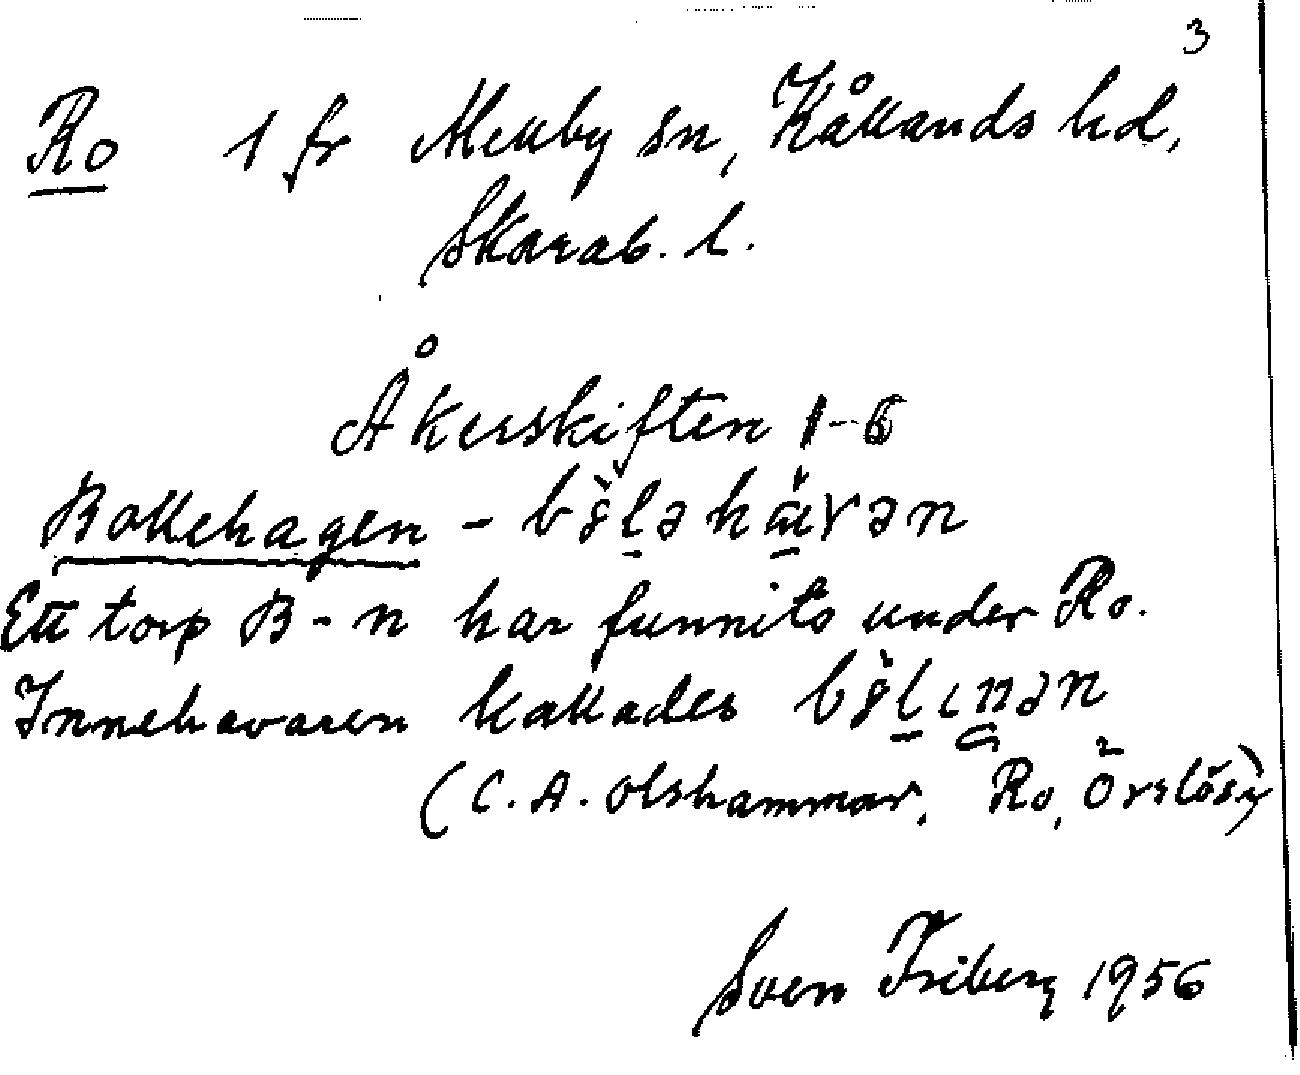 3
Ro 1 fr Mellby sn, Kållands hd,
Skarab. l.
Åkerskiften 1-6
Bollehagen -
Ett torp B-n har funnits under Ro.
Innehavaren kallades
(C. A. Olshammar, Ro, Örslösa)
Sven Friberg 1956